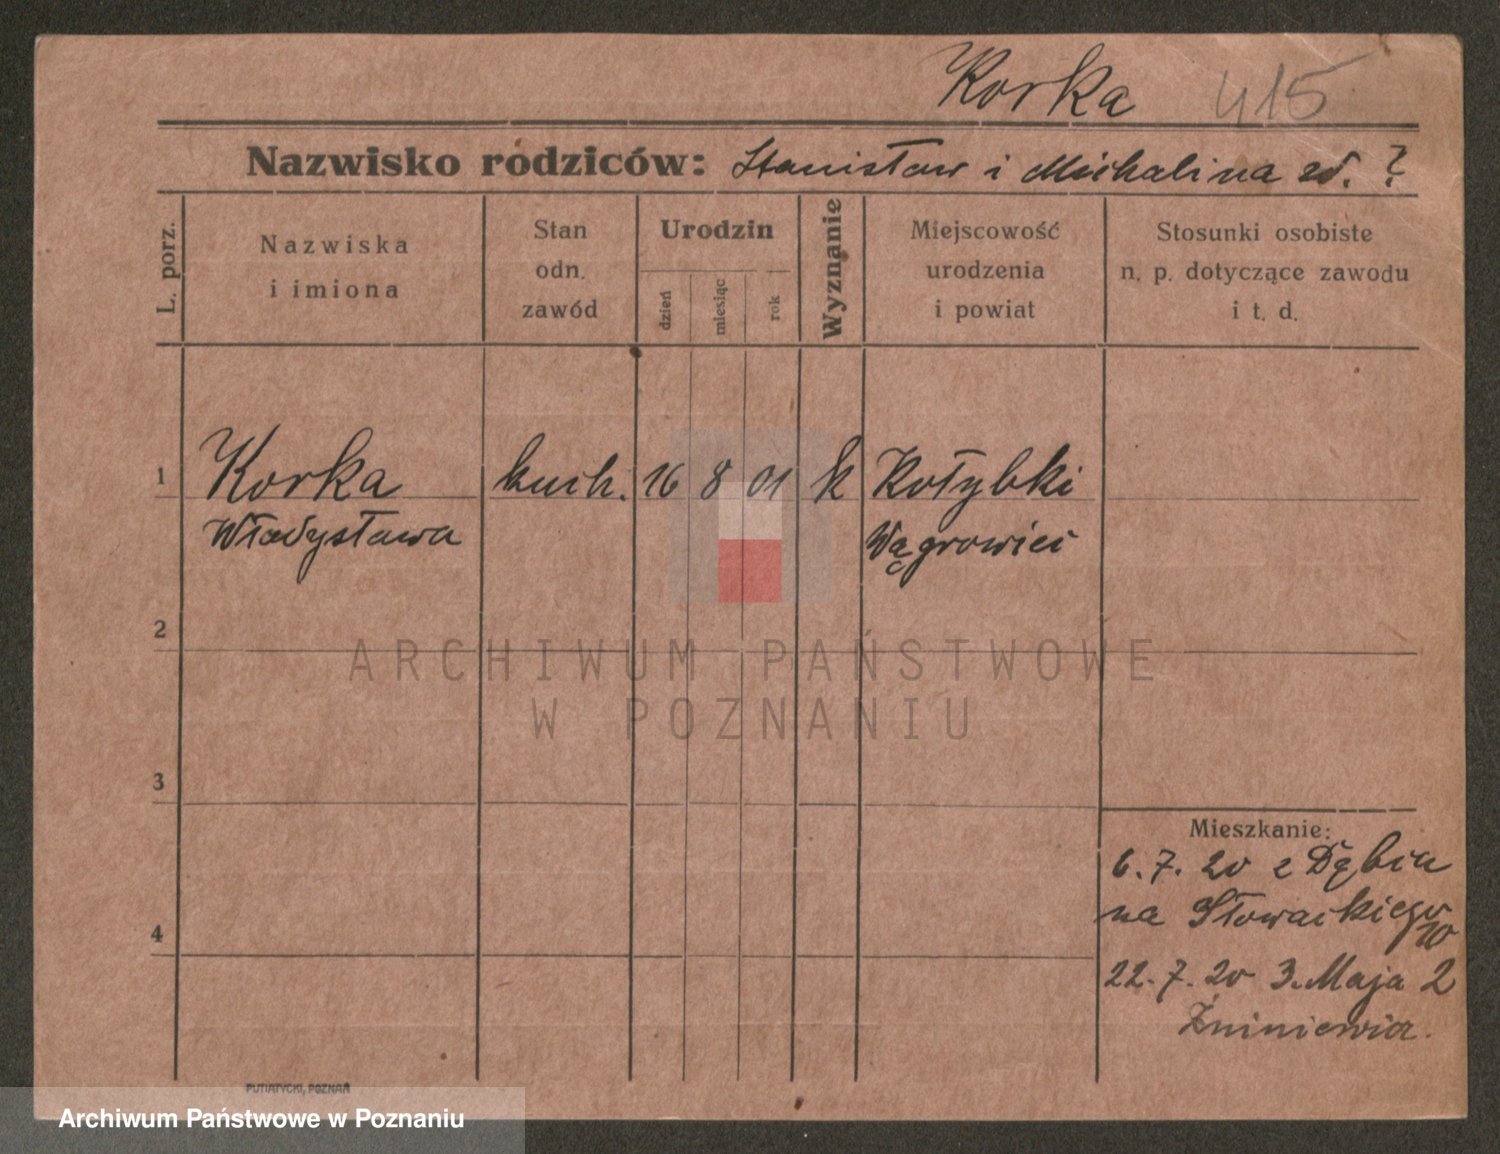 Korka 415
Nazwisko rodziców: Stanisław i Michalina zd. ?
L. porz.
Nazwiska
i imiona
Stan
odn.
zawód
Urodzin
dzień
miesiąc
rok
Wyznanie
Miejscowość
urodzenia
i powiat
Stosunki osobiste
n. p. dotyczące zawodu
i t. d.
1 Korka kuch. 16 8 01 k Kołybki
Władysława Wągrowiec
2
3
4
ARCHIWUM PAŃSTWOWE
W POZNANIU
Mieszkanie:
6. 7. 20 z Dębca
na Słowackiego
10
22. 7. 20 3. Maja 2
Żniniewicz.
PUTIATYCKI, POZNAŃ
Archiwum Państwowe w Poznaniu